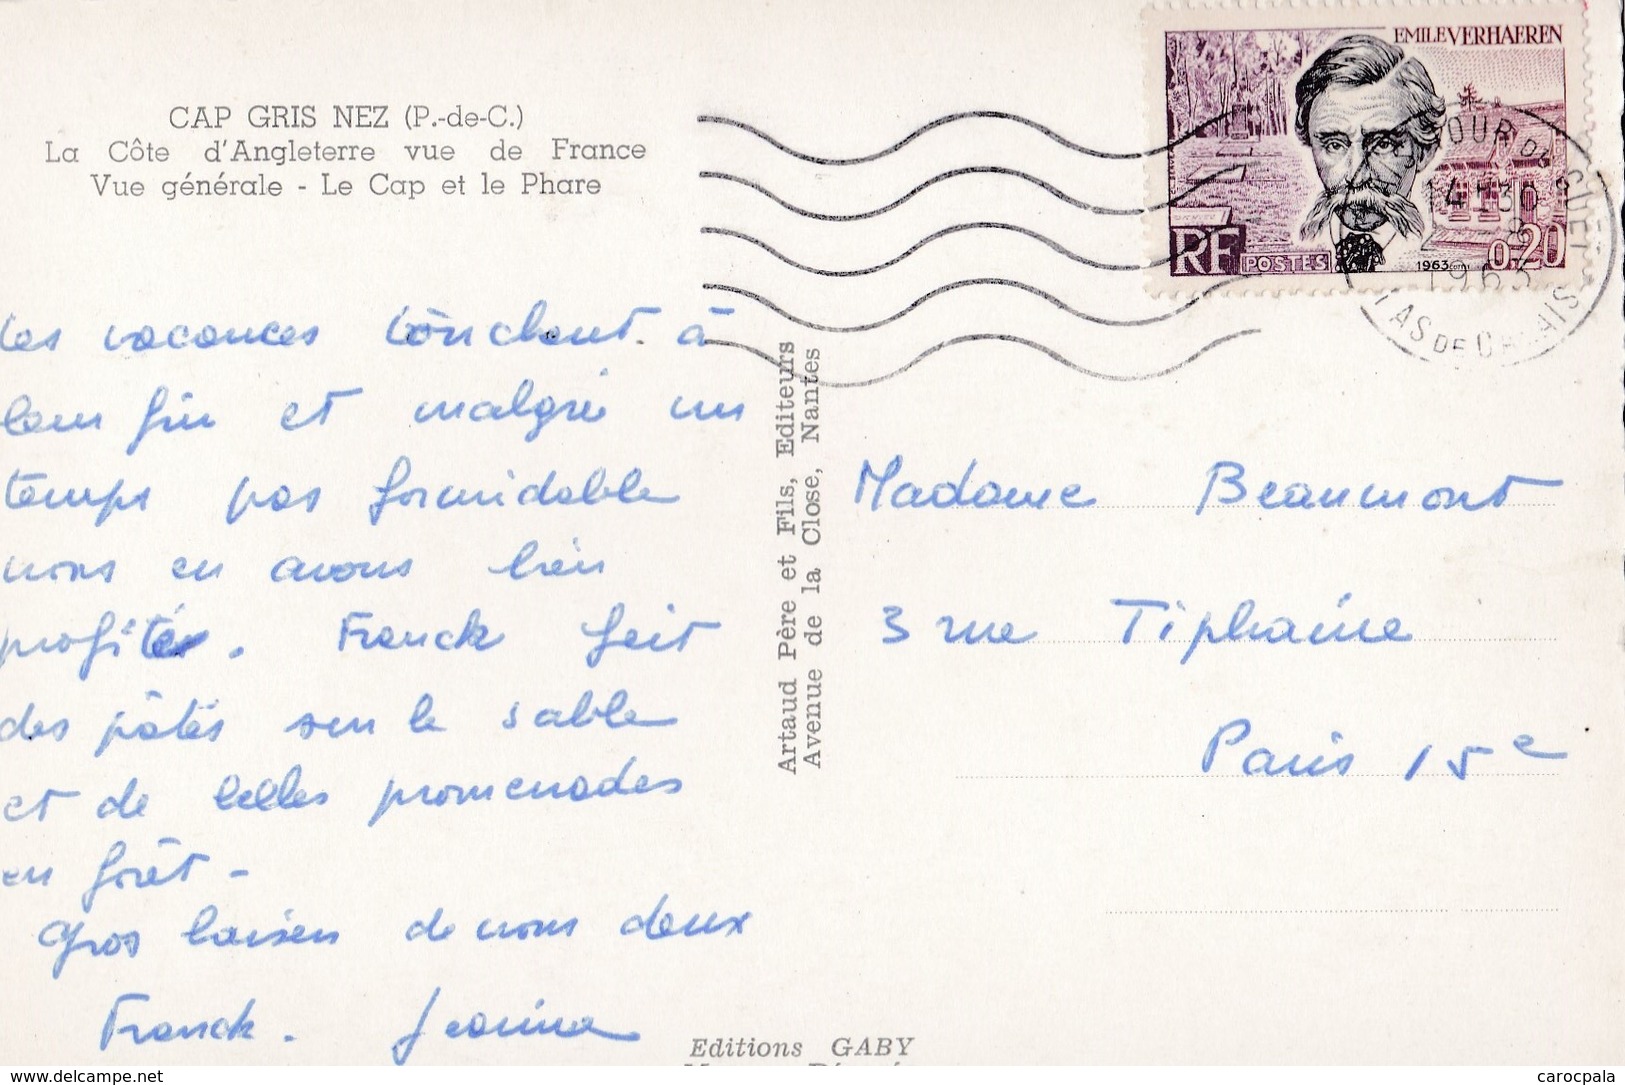 CAP GRIS NEZ (P.-de-C.)
La Côte d'Angleterre vue de France
Vue générale - Le Cap et le Phare
EMILE VERHAEREN
RF POSTES 1963 0,20
14 H30
1963
PAS DE CALAIS
Les vacances touchent à
leur fin et malgré un
temps pas formidable
nous en avons bien
profité. Franck fait
des pâtés sur le sable
et de belles promenades
en forêt -
Gros baisers de nous deux
Franck. Jeanine
Artaud Père et Fils, Editeurs
Avenue de la Close, Nantes
Madame Beaumont
3 rue Tiphaine
Paris 15e
Editions GABY
Delcampe.net website
carocpala